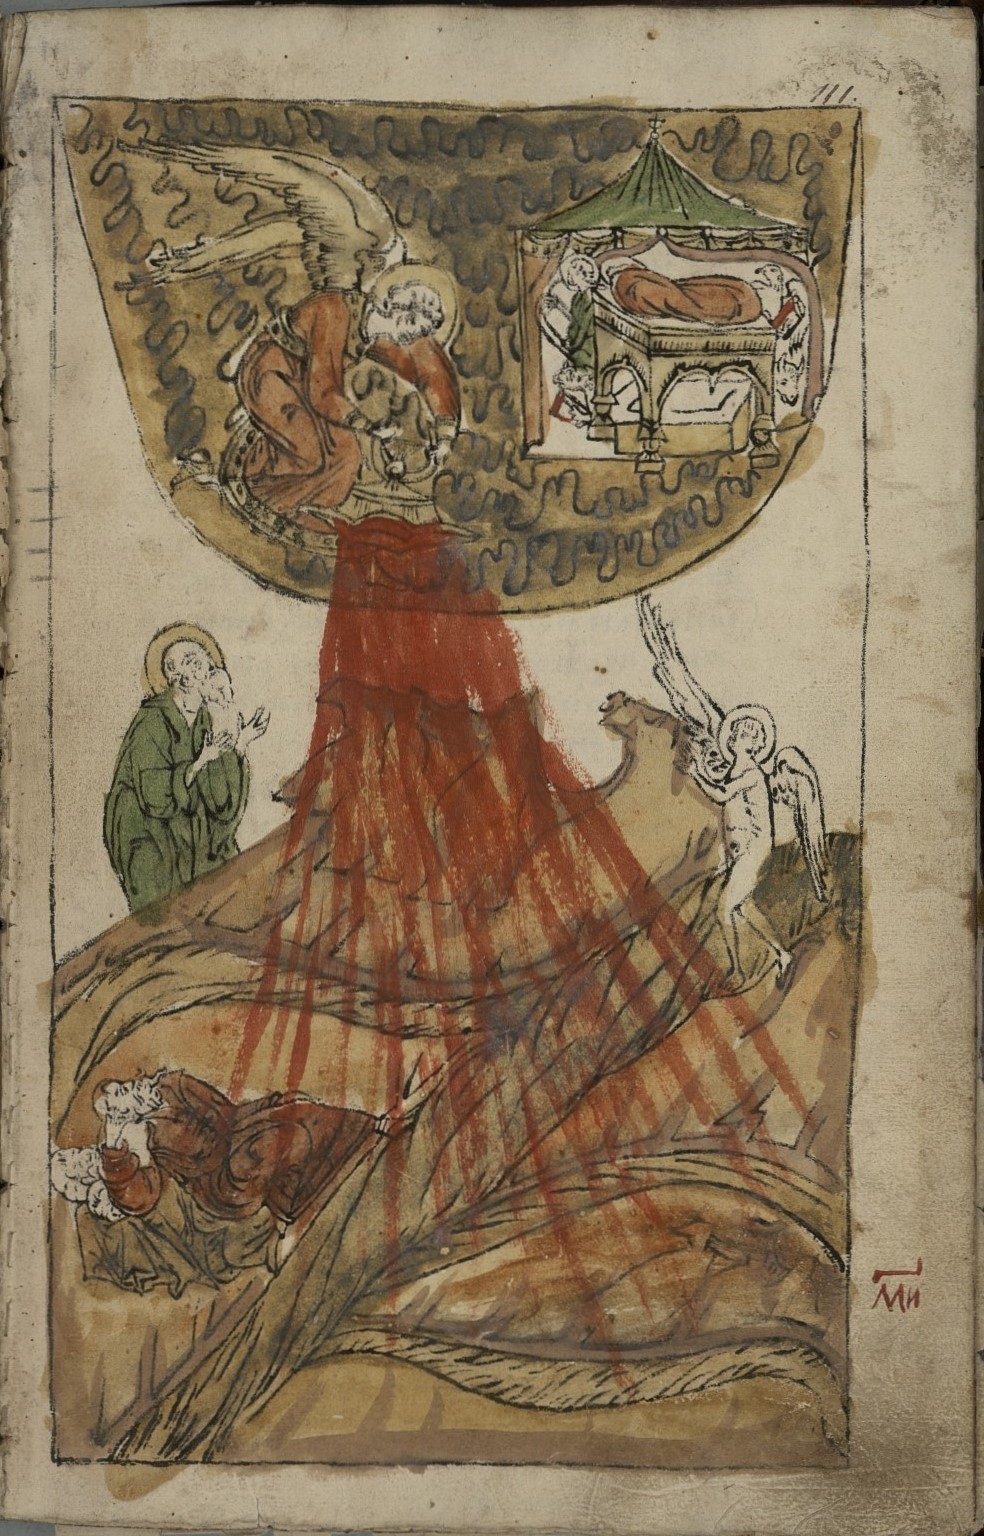 111.
м҃и